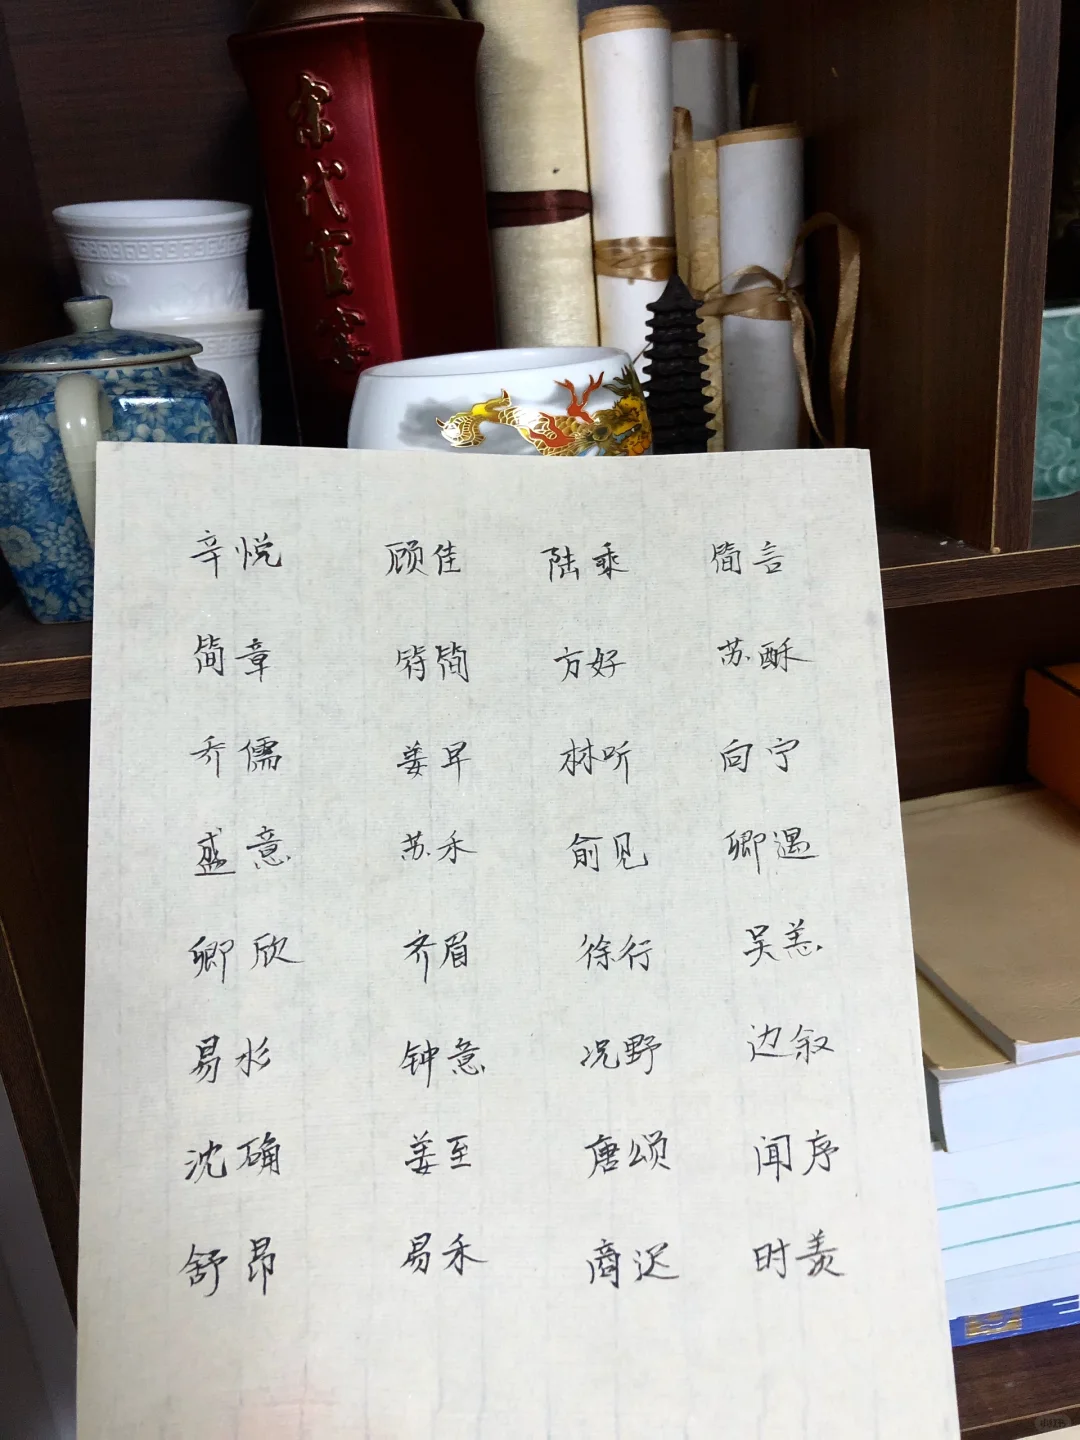 宋代官窑
辛悦 顾佳 陆乘 简言
简章 符简 方好 苏酥
乔儒 姜早 林听 向宁
盛意 苏禾 俞见 卿遇
卿欣 齐眉 徐行 吴恙
易水 钟意 况野 边叙
沈确 姜至 唐颂 闻序
舒昂 易禾 商迟 时羡